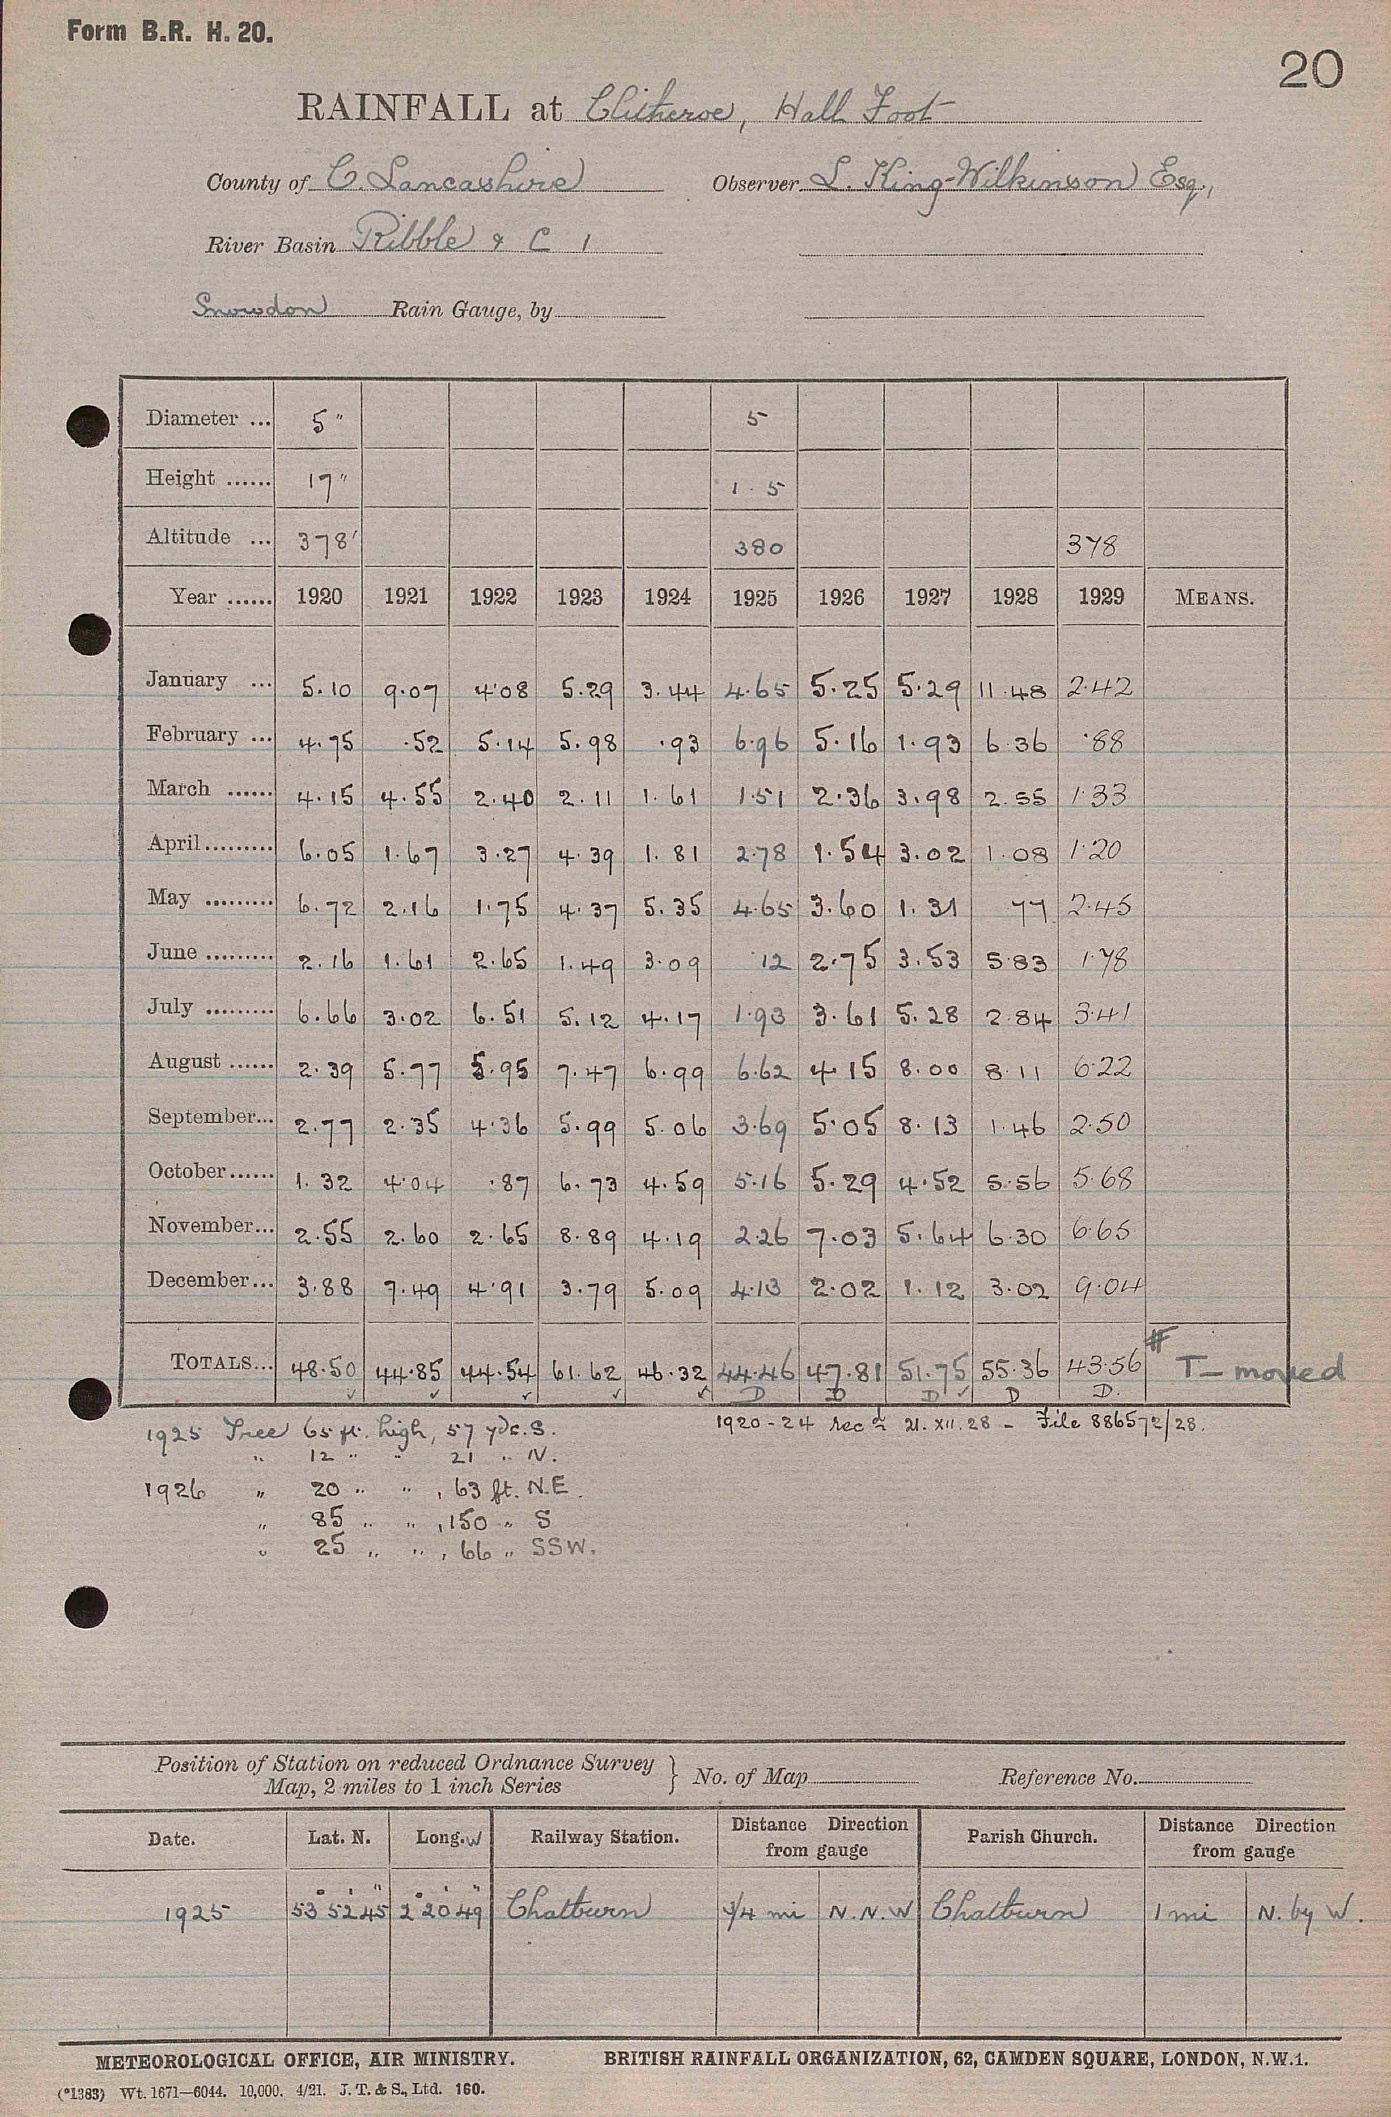 Form B.R. H. 20.
20
RAINFALL at Clitheroe, Hall Foot
County of C. Lancashire Observer L. King-Wilkinson Esq.,
River Basin Ribble & C 1
Snowdon Rain Gauge, by
Diameter ... 5" 5
Height ...... 17" 1.5
Altitude ... 378' 380 378
Year ...... 1920 1921 1922 1923 1924 1925 1926 1927 1928 1929 MEANS.
January ... 5.10 9.07 4.08 5.29 3.44 4.65 5.25 5.29 11.48 2.42
February ... 4.75 .52 5.14 5.98 .93 6.96 5.16 1.93 6.36 .88
March ...... 4.15 4.55 2.40 2.11 1.61 1.51 2.36 3.98 2.55 1.33
April ......... 6.05 1.67 3.27 4.39 1.81 2.78 1.54 3.02 1.08 1.20
May ......... 6.72 2.16 1.75 4.37 5.35 4.65 3.60 1.31 .77 2.45
June ......... 2.16 1.61 2.65 1.49 3.09 .12 2.75 3.53 5.83 1.78
July ......... 6.66 3.02 6.51 5.12 4.17 1.93 3.61 5.28 2.84 3.41
August ...... 2.39 5.77 5.95 7.47 6.99 6.62 4.15 8.00 8.11 6.22
September... 2.77 2.35 4.36 5.99 5.06 3.69 5.05 8.13 1.46 2.50
October ...... 1.32 4.04 .87 6.73 4.59 5.16 5.29 4.52 5.56 5.68
November... 2.55 2.60 2.65 8.89 4.19 2.26 7.03 5.64 6.30 6.65
December... 3.88 7.49 4.91 3.79 5.09 4.13 2.02 1.12 3.02 9.04
TOTALS... 48.50 44.85 44.54 61.62 46.32 44.46 47.81 51.75 55.36 43.56 # T- moved
✓ ✓ ✓ ✓ ✓ D D D ✓ D D.
1925 Tree 65 ft. high, 57 yds. S. 1920-24 recd 21.XII.28 - File 886572/28.
" 12 " " 21 " N.
1926 " 20 " " , 63 ft. N.E.
" 85 " " , 150 " S
" 25 " " , 66 " SSW.
Position of Station on reduced Ordnance Survey
Map, 2 miles to 1 inch Series } No. of Map Reference No.
Date. Lat. N. Long. W Railway Station. Distance Direction from gauge Parish Church. Distance Direction from gauge
1925 53° 52' 45" 2° 20' 49" Chatburn 3/4 mi N.N.W Chatburn 1 mi N. by W.
METEOROLOGICAL OFFICE, AIR MINISTRY. BRITISH RAINFALL ORGANIZATION, 62, CAMDEN SQUARE, LONDON, N.W.1.
(*1383) Wt. 1671—6044. 10,000. 4/21. J. T. & S., Ltd. 160.